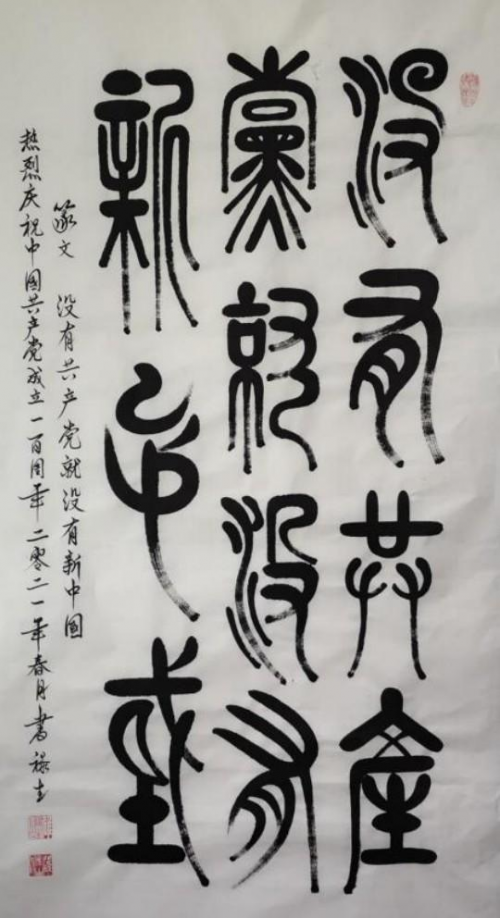 没有共产
黨就没有
新中或
篆文 没有共产党就没有新中国
热烈庆祝中国共产党成立一百周年二零二一年春月书